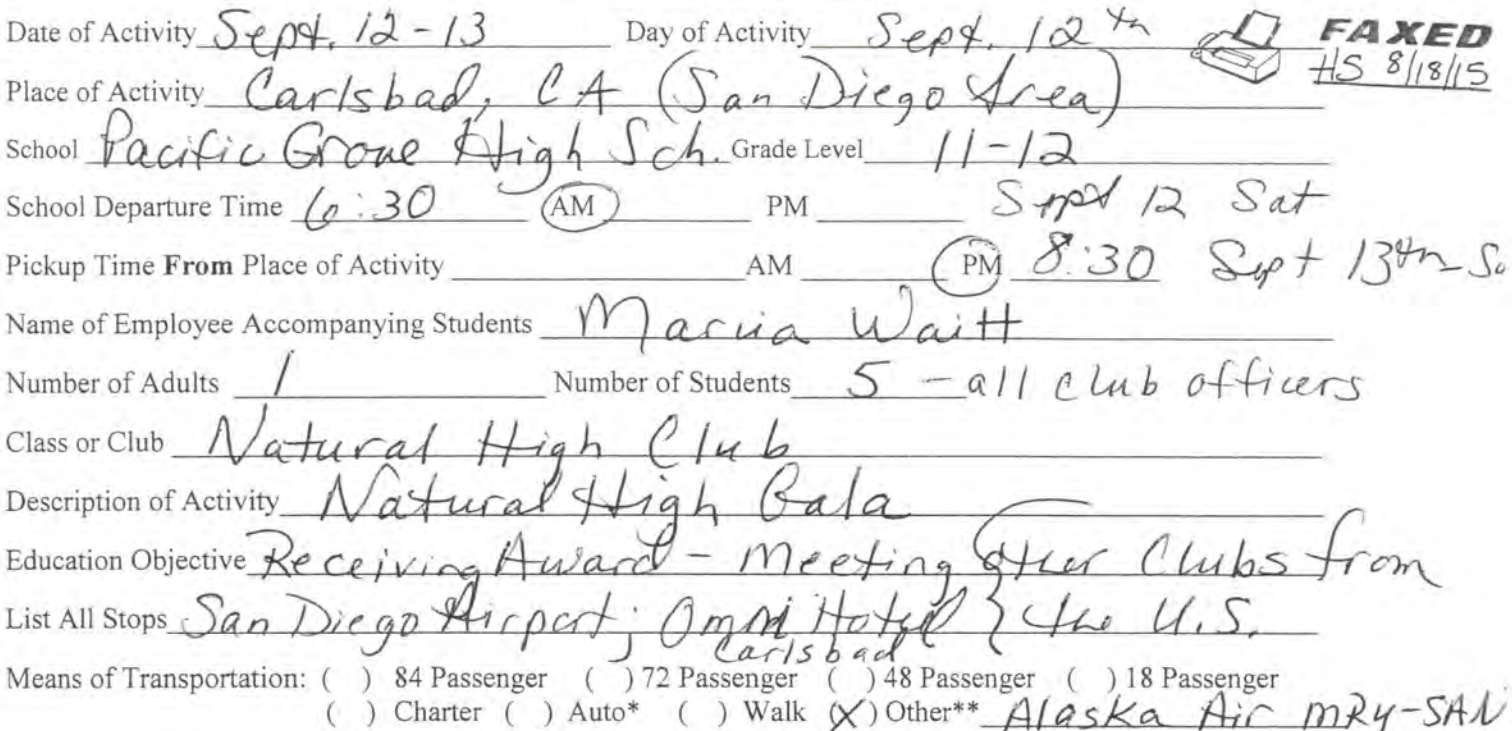 Date of Activity Sept. 12-13 Day of Activity Sept. 12th FAXED
HS 8/18/15
Place of Activity Carlsbad, CA (San Diego Area)
School Pacific Grove High Sch. Grade Level 11-12
School Departure Time 6:30 AM PM Sept 12 Sat
Pickup Time From Place of Activity AM PM 8:30 Sept 13th Su
Name of Employee Accompanying Students Marcia Waitt
Number of Adults 1 Number of Students 5 - all club officers
Class or Club Natural High Club
Description of Activity Natural High Gala
Education Objective Receiving Award - Meeting other Clubs from
the U.S.
List All Stops San Diego Airport; Omni Hotel
Carlsbad
Means of Transportation: ( ) 84 Passenger ( ) 72 Passenger ( ) 48 Passenger ( ) 18 Passenger
( ) Charter ( ) Auto* ( ) Walk (X) Other** Alaska Air MRY-SAN